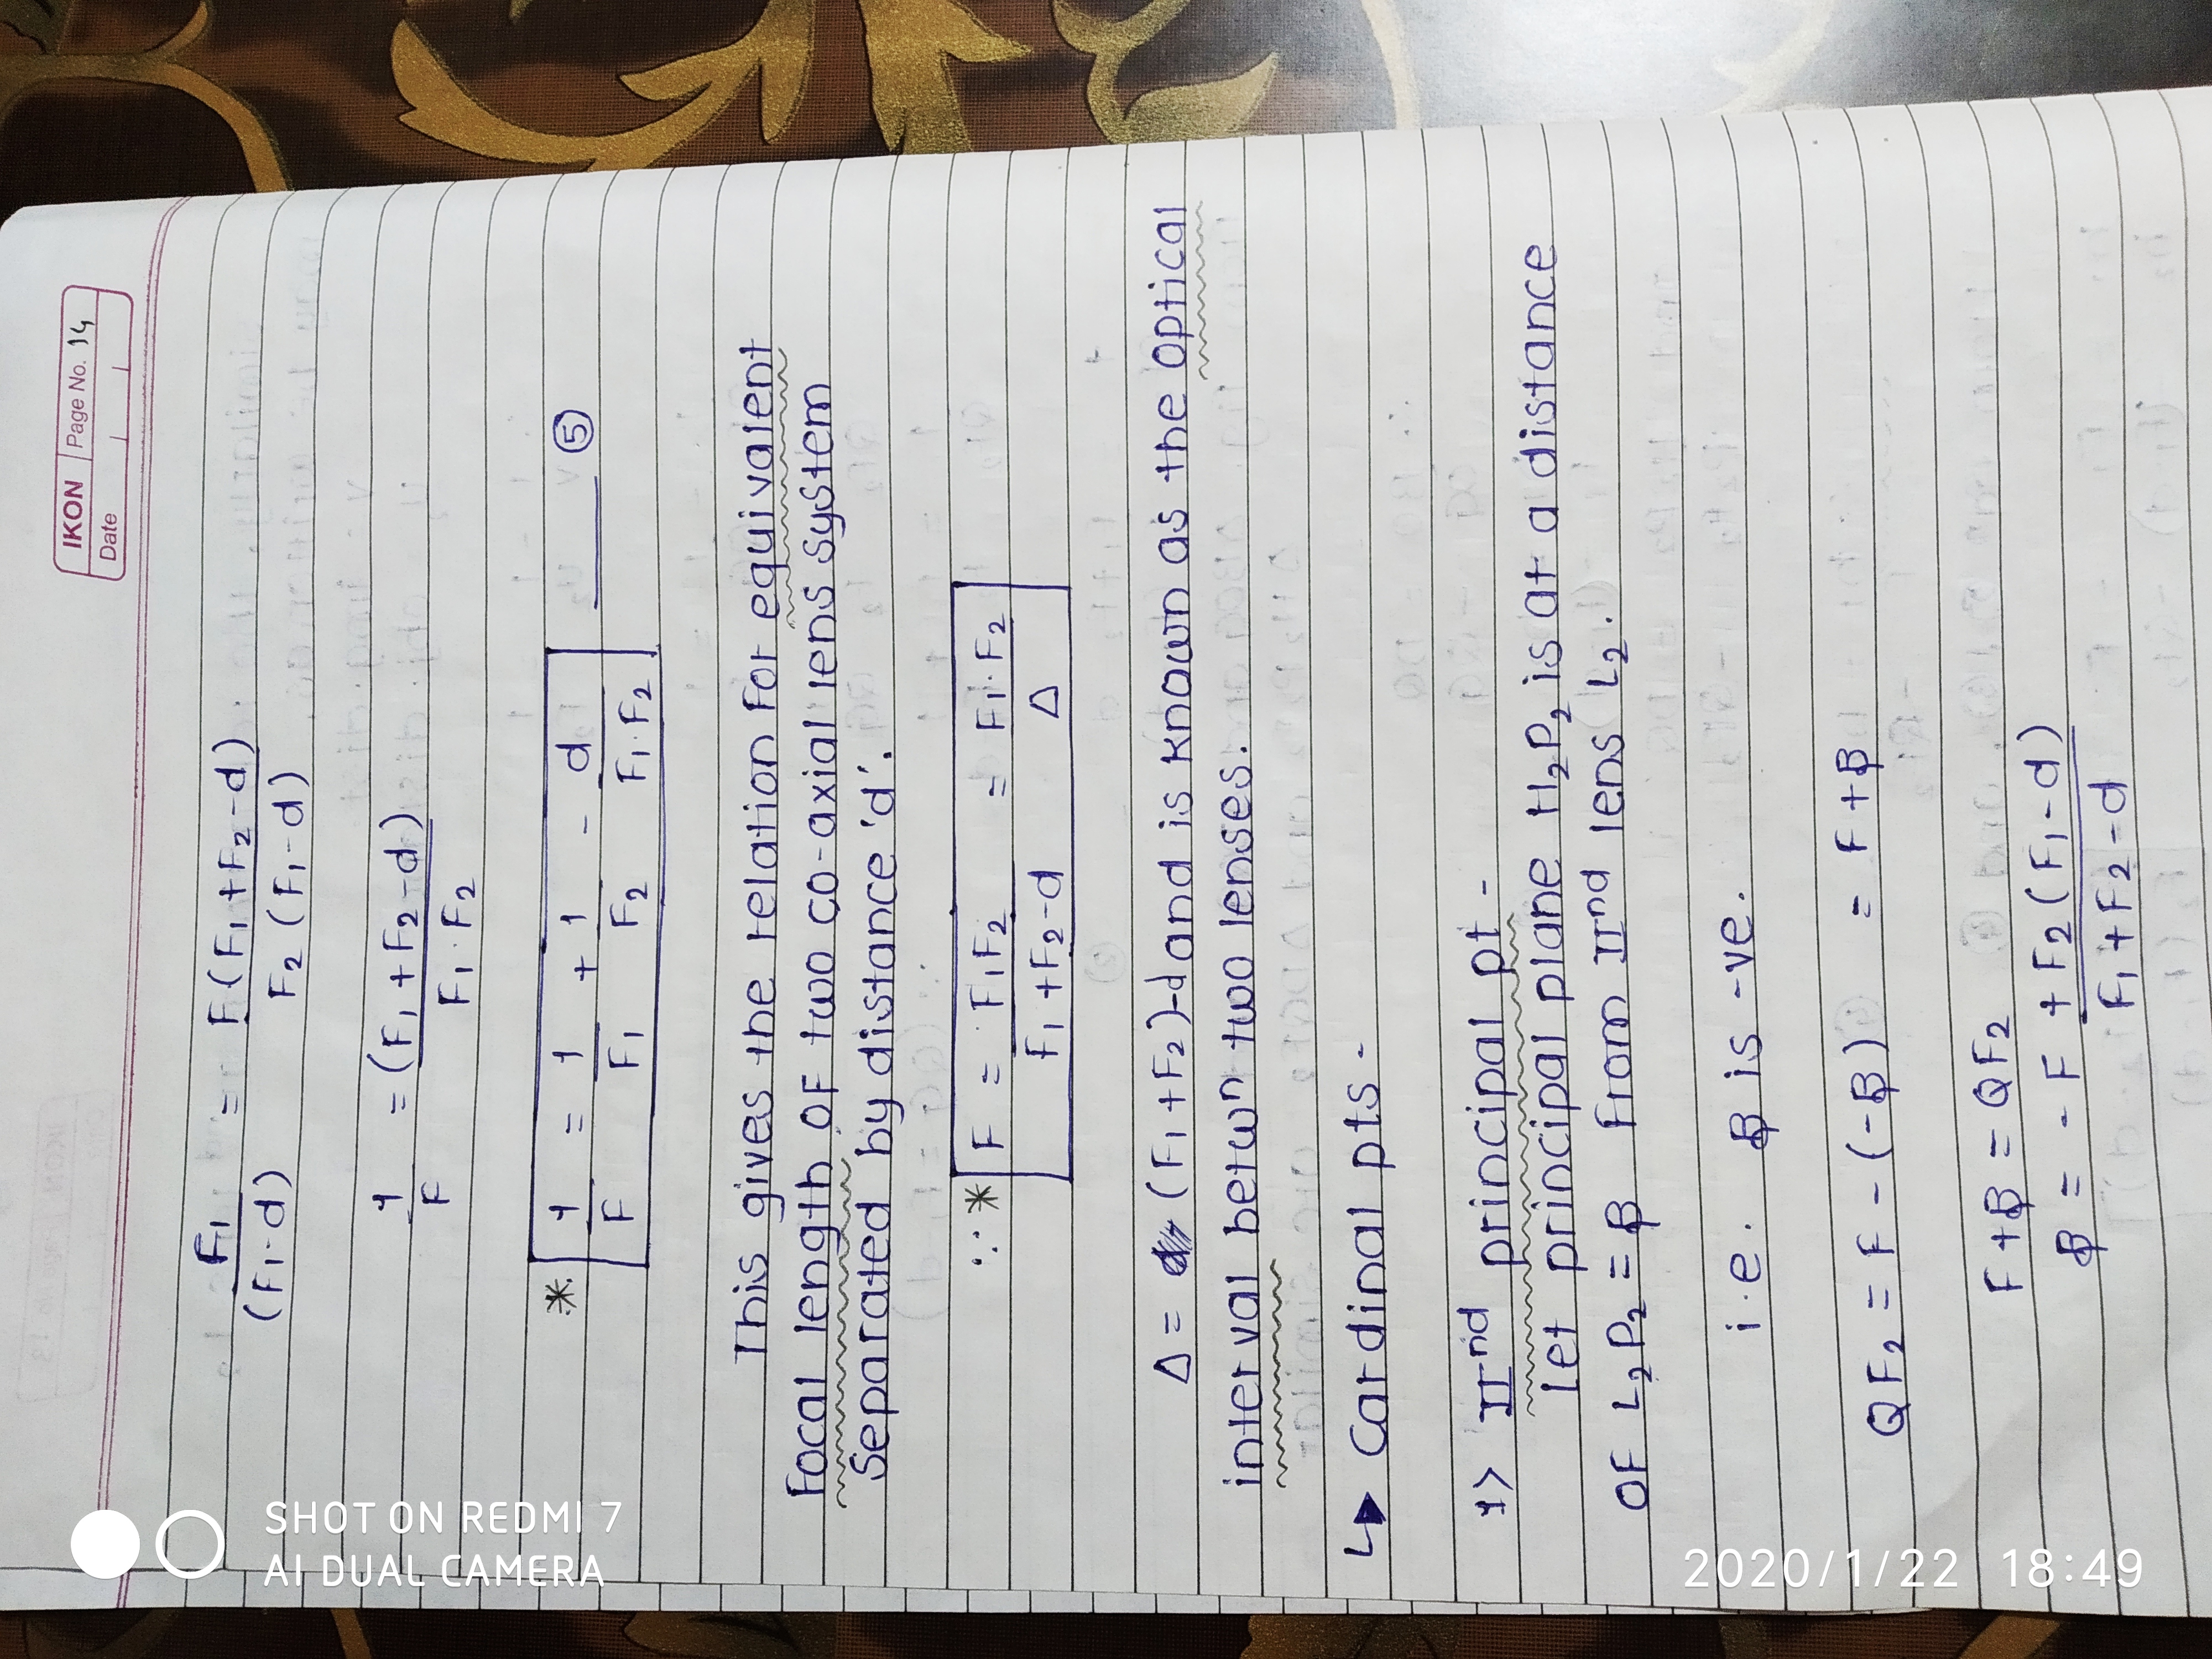 IKON Page No. 14
Date
F₁/(F₁-d) = F(F₁+F₂-d)/F₂(F₁-d)
1/F = (F₁+F₂-d)/F₁·F₂
* 1/F = 1/F₁ + 1/F₂ - d/F₁·F₂ ⑤
This gives the relation for equivalent
focal length of two co-axial lens system
separated by distance 'd'.
∴ * F = F₁F₂/F₁+F₂-d = F₁·F₂/Δ
Δ = (F₁+F₂)-d and is known as the optical
interval betwⁿ two lenses.
↳ Cardinal pts -
1> IIⁿᵈ principal pt -
Let principal plane H₂P₂ is at a distance
of L₂P₂ = β from IIⁿᵈ lens L₂.
i.e. β is -ve.
QF₂ = F - (-β) = F+β
F+β = QF₂
β = -F + F₂(F₁-d)/F₁+F₂-d
SHOT ON REDMI 7
AI DUAL CAMERA
2020/1/22 18:49